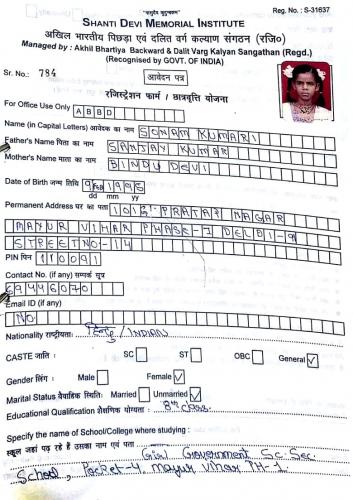 "वसुधैव कुटुम्बकम्"
Reg. No. : S-31637
SHANTI DEVI MEMORIAL INSTITUTE
अखिल भारतीय पिछड़ा एवं दलित वर्ग कल्याण संगठन (रजि०)
Managed by : Akhil Bhartiya Backward & Dalit Varg Kalyan Sangathan (Regd.)
(Recognised by GOVT. OF INDIA)
Sr. No.: 784
आवेदन पत्र
रजिस्ट्रेशन फार्म / छात्रवृत्ति योजना
For Office Use Only ABBD
Name (in Capital Letters) आवेदक का नाम SONAM KUMARI
Father's Name पिता का नाम SANJAY KUMAR
Mother's Name माता का नाम BINDU DEVI
Date of Birth जन्म तिथि 1995
dd mm yy
Permanent Address घर का पता 101 PRATAP NAGAR
MAYUR VIHAR PHASE-1 DELHI-9
STREET NO-14
PIN पिन 110091
Contact No. (if any) सम्पर्क सूत्र
69446070
Email ID (if any)
NO
Nationality राष्ट्रीयता: हिन्दु / INDIANS
CASTE जाति : SC ST OBC General ✓
Gender लिंग : Male Female ✓
Marital Status वैवाहिक स्थिति: Married Unmarried ✓
Educational Qualification शैक्षणिक योग्यता : 8th class
Specify the name of School/College where studying :
स्कूल जहां पढ़ रहे हैं उसका नाम एवं पता : Girl Government Sc. Sec.
School, Pocket-4, mayur vihar PH-1